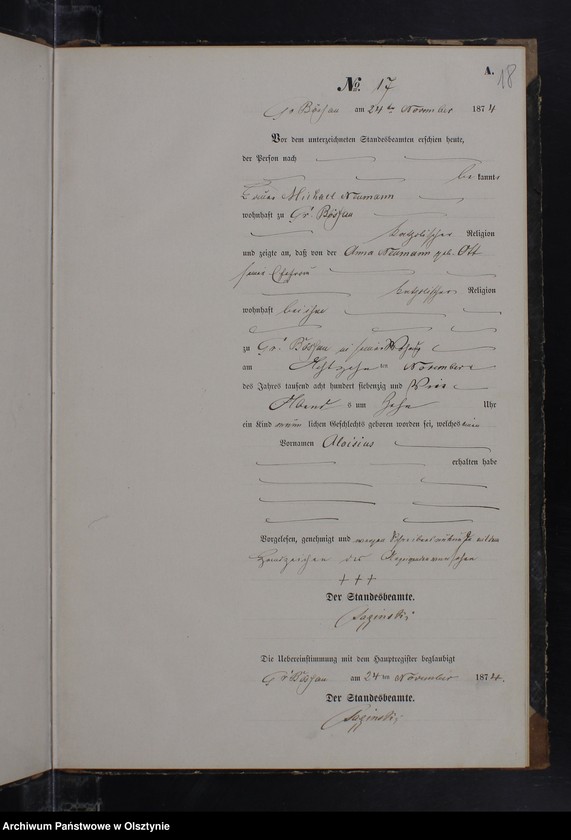 A.
18
No. 17
Gr Bößau am 24ten November 1874
Vor dem unterzeichneten Standesbeamten erschien heute,
der Person nach
bekannt
Michael Neumann
wohnhaft zu Gr. Bößau
katholischer Religion
und zeigte an, daß von der Anna Neumann geb. Ott
seiner Ehefrau
katholischer Religion
wohnhaft bei ihm
zu Gr. Bößau in seiner Wohnung
am Achtzehnten November
des Jahres tausend acht hundert siebenzig und Vier
Abends um Zehn Uhr
ein Kind männlichen Geschlechts geboren worden sei, welches
Vornamen Aloisius
erhalten habe
Vorgelesen, genehmigt und wegen mit dem
Handzeichen des
+ + +
Der Standesbeamte.
Die Uebereinstimmung mit dem Hauptregister beglaubigt
Gr Bößau am 24ten November 1874.
Der Standesbeamte.
Archiwum Państwowe w Olsztynie